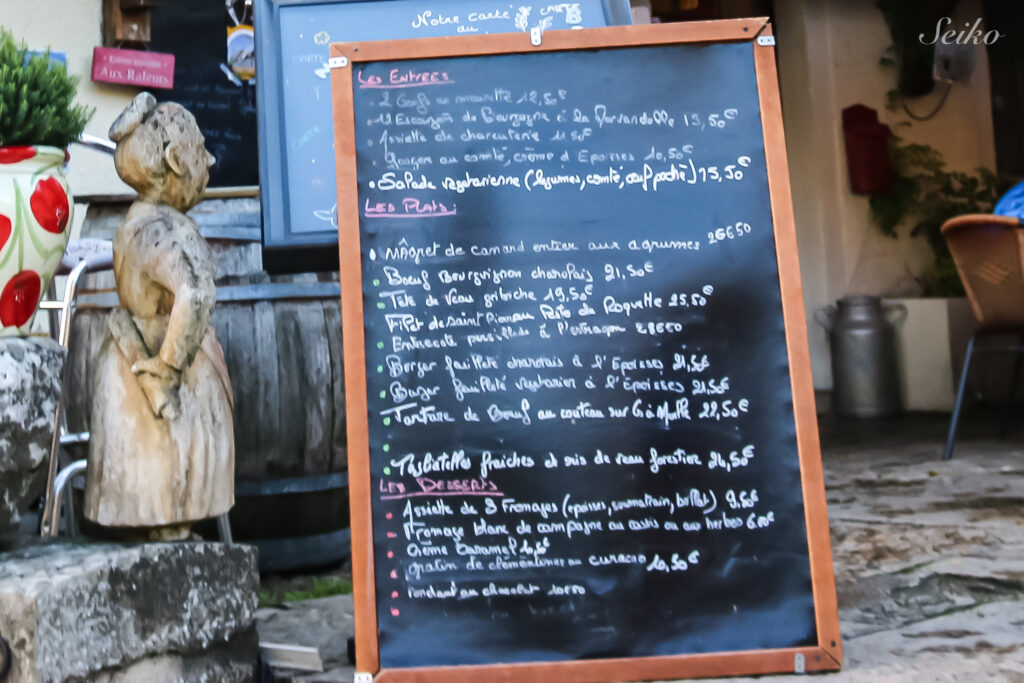 Notre Carte
du
Seiko
Entrée
Aux Raleurs
CARTE
Les Entrees
2 Oeufs en meurette 12,50€
12 Escargots de Bourgogne à la Persandelle 15,50€
Assiette de charcuterie 11 50€
Gougère au comté, crème d'Epoisses 10,50€
Salade vegetarienne (légumes, comté, œuf poché) 15,50€
Les Plats:
Mâgret de canard entier aux agrumes 26€50
Boeuf Bourguignon charolais 21,50€
Tête de veau gribiche 19,50€
Filet de Saint Pierre au Pesto de Roquette 25,50€
Entrecote persillade à l'estragon 28€50
Burger feuilleté charolais à l'Epoisses 21,50€
Burger feuilleté vegetarien à l'Epoisses 21,50€
Tartare de Boeuf au couteau 22,50€
Tagliatelles fraiches et ris de veau forestier 24,50€
Les Desserts
Assiette de 3 Fromages (epoisses, soumaintrain, brillat) 9,50€
Fromage blanc de campagne au cassis ou aux herbes 6€00
Crème Caramel
gratin de clémentines au curacao 10,50€
Fondant au chocolat 10€50